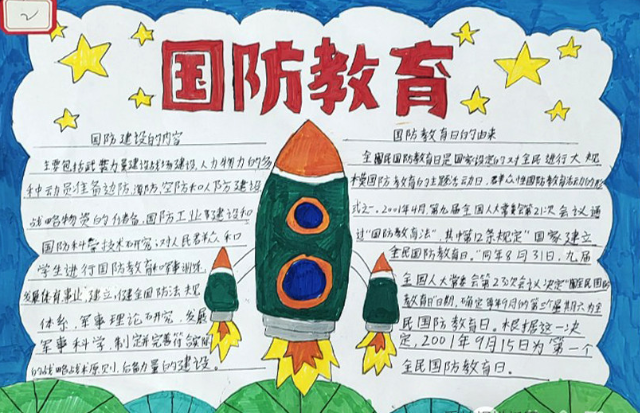 2
国防教育
国防建设的内容
主要包括武装力量建设战场建设,人力物力的多
种动员准备边防海防,空防和人防建设
战略物资的储备,国防工业建设和
国防科学技术研究对人民群众和
学生进行国防教育和军事训练
发展体育事业"建立健全国防法规
体系,军事理论研究,发展
军事科学,制定
的战略战术原则,后备力量的建设。
国防教育日的由来
全国民国防教育日是国家设定的对全民进行大规
模国防教育的主题活动日,是群众性国防教育活动的形
式之一,2001年4月,第九届全国人大常委会第21次会议通
过"国防教育法",其中第12条规定"国家建立
全民国防教育日。"同年8月31日,九届
全国人大常委会第23次会议决定"设全民国防
教育日"日期,确定每年9月的第三个星期六为全
民国防教育日。根据这一决
定,2001年9月15日为第一个
全民国防教育日。